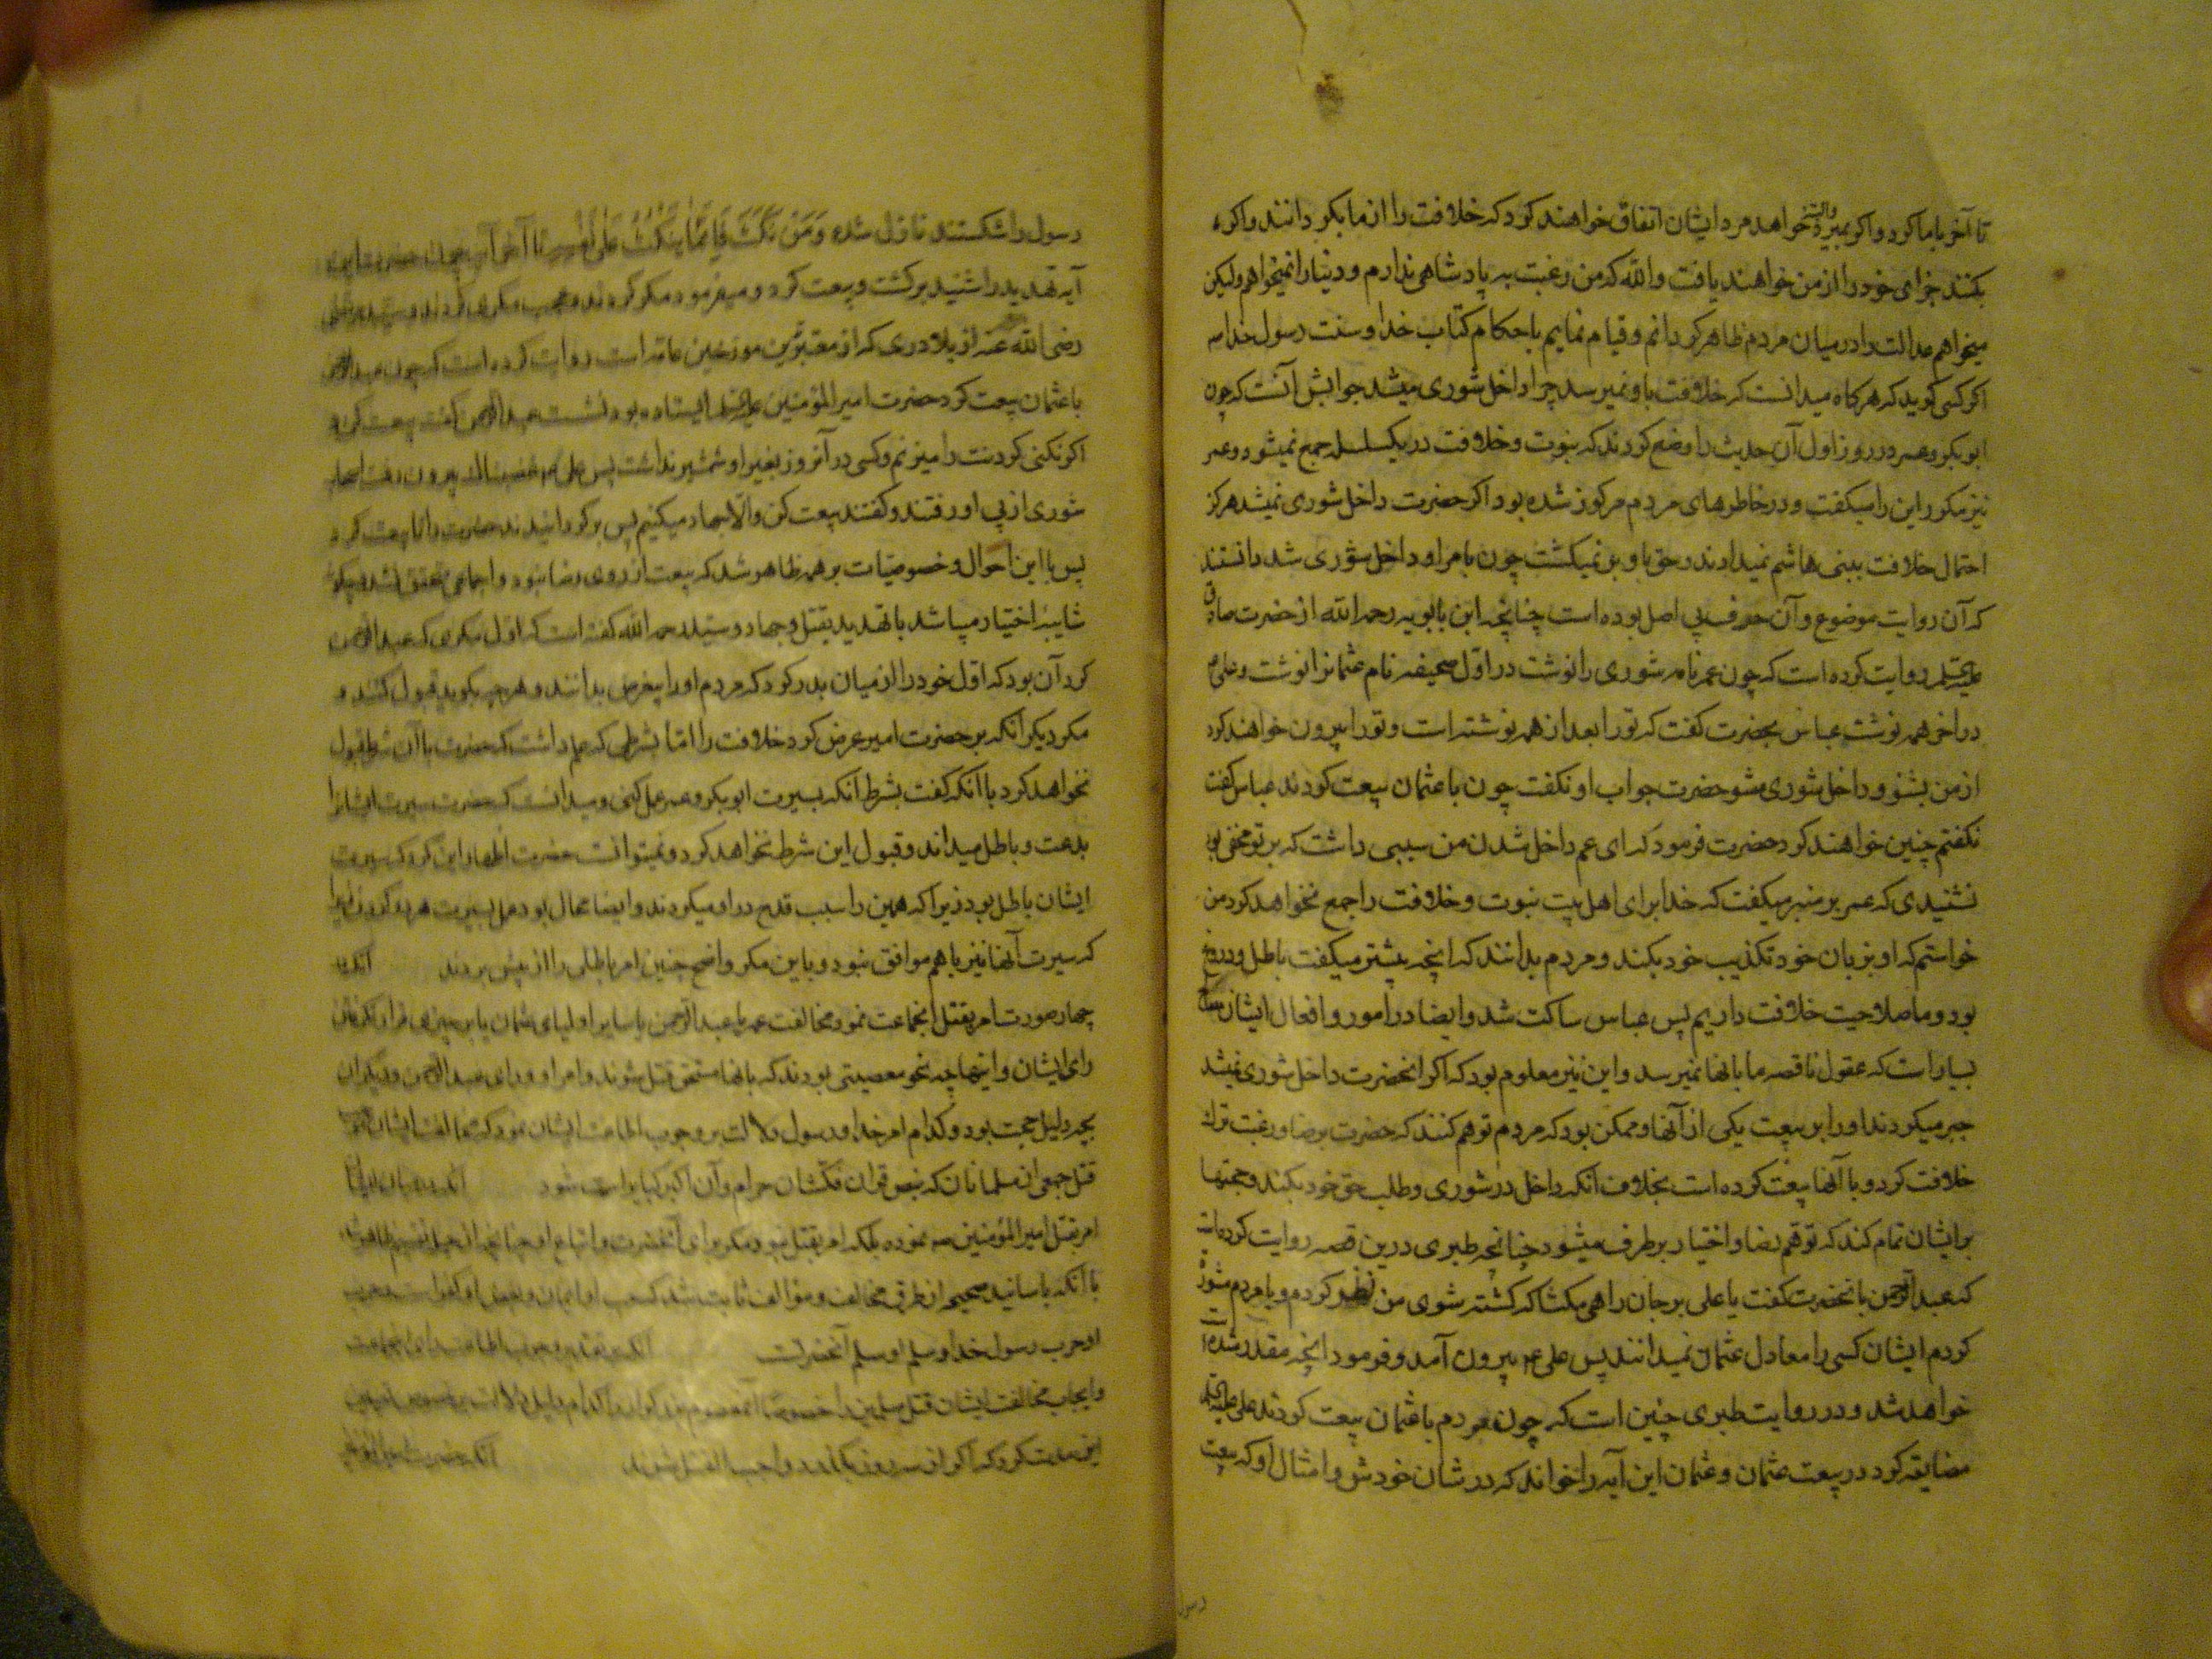 تا آخر با ما کرد و اکر بمیرد خواهد مرد ایشان اتفاق خواهند کرد که خلافت را از ما بکردانند و اکر
بکنند جزای خود را از من خواهند یافت والله که من رغبت به پادشاهی ندارم و دنیا را نمیخواهم ولیکن
میخواهم عدالت را در میان مردم ظاهر کردانم و قیام نمایم باحکام کتاب خدا و سنت رسول خدا ص
اکر کسی کوید که هرکاه میدانست که خلافت باو نمیرسد چرا داخل شوری میشد جوابش آنست که چون
ابوبکر و عمر در روز اول آن حدیث را وضع کردند که نبوت و خلافت در یکسلسله جمع نمیشود و عمر
نیز مکرر این را میکفت و در خاطرهای مردم مرکوز شده بود اکر حضرت داخل شوری نمیشد هرکز
احتمال خلافت ببنی هاشم نمیدادند و حق باو بر نمیکشت چون بامر او داخل شوری شد دانستند
که آن روایت موضوع و آن حرف بی اصل بوده است چنانچه ابن بابویه رحمه الله از حضرت صادق
علیه السلم روایت کرده است که چون عمر نامه شوری را نوشت در اول صحیفه نام عثمانرا نوشت و علی را
در آخر همه نوشت عباس بحضرت کفت که تو را بعد از همه نوشته است و تو را بیرون خواهند کرد
از من بشنو و داخل شوری مشو حضرت جواب او نکفت چون با عثمان بیعت کردند عباس کفت
نکفتم چنین خواهند کرد حضرت فرمود که ای عم داخل شدن من سببی داشت که بر تو مخفی بود
نشنیدی که عمر بر منبر میکفت که خدا برای اهل بیت نبوت و خلافت را جمع نخواهد کرد من
خواستم که او بزبان خود تکذیب خود بکند و مردم بدانند که آنچه پیشتر میکفت باطل و دروغ
بود و ما صلاحیت خلافت داریم پس عباس ساکت شد و ایضا در امور و افعال ایشان
بسیار است که عقول ناقصه ما بانها نمیرسد و این نیز معلوم بود که اکر انحضرت داخل شوری نمیشد
جبر میکردند او را بر بیعت یکی از آنها و ممکن بود که مردم توهم کنند که حضرت برضا و رغبت ترک
خلافت کرد و با آنها بیعت کرده است بخلاف انکه داخل در شوری و طلب حق خود بکند و حجتها
بر ایشان تمام کند که توهم رضا و اختیار برطرف میشود چنانچه طبری درین قصه روایت کرده است
که عبد الرحمن بانحضرت کفت یا علی بر جان راهی مکشا که کشته شوی من نظر کردم و با مردم مشورت
کردم ایشان کسی را معادل عثمان نمیدانند پس علی ع بیرون آمد و فرمود آنچه مقدر شده است
خواهد شد و در روایت طبری چنین است که چون مردم با عثمان بیعت کردند علی علیه السلم
مضایقه کرد در بیعت عثمان و عثمان این آیه را خواند که در شان خودش و امثال او که بیعت
رسول
رسول را شکستند نازل شده وَمَنْ نَكَثَ فَإِنَّمَا يَنْكُثُ عَلَى نَفْسِهِ تا آخر آیه چون حضرت این
آیه تهدید را شنید برکشت و بیعت کرد و میفرمود مکر کردند و
رضی الله عنه از بلادری که از معتبرترین مورخین عامه است روایت کرده است که چون عبد الرحمن
با عثمان بیعت کرد حضرت امیر المؤمنین علیه السلم ایستاده بود نشست عبد الرحمن کفت بیعت کن و
اکر نکنی کردنت را میزنم و کسی در آنروز بغیر او شمشیر نداشت پس علی ع غضبناک بیرون رفت اصحاب
شوری از پی او رفتند و کفتند بیعت کن والا جهاد میکنیم پس برکردانیدند حضرت را تا بیعت کرد
پس با این احوال و خصوصیات بر همه ظاهر شد که بیعت از روی رضا نبود و اجماعی محقق نشد و چکونه
شایبه اختیار میباشد با تهدید بقتل و جهاد و سید رحمه الله کفته است که اول مکری که عبد الرحمن
کرد آن بود که اول خود را از میان بدر کرد که مردم او را بیغرض بدانند و هر چه بکوید قبول کنند و
مکر دیکر انکه بر حضرت امیر عرض کرد خلافت را اما بشرطی که علم داشت که حضرت با آن شرط قبول
نخواهد کرد با آنکه کفت بشرط آنکه بسیرت ابوبکر و عمر عمل کنی و میدانست که حضرت سیرت ایشانرا
بدعت و باطل میداند و قبول این شرط نخواهد کرد و نمیتوانست حضرت اظهار این کرد که سیرت
ایشان باطل بود زیرا که همین را سبب قدح در او میکردند و ایضا محال بود عمل بسیرت هر دو کردن زیرا
که سیرت آنها نیز باهم موافق نبود و باین مکر واضح چنین امر باطلی را از پیش بردند آنکه
چهار صورت امر بقتل انجماعت نمود مخالفت عمر یا عبد الرحمن یا سایر اولیای عثمان یا
رای ایشان و اینها چه نحو معصیتی بودند که بانها مستحق قتل شوند و امر او و رای عبد الرحمن و دیکران
بچه دلیل حجت بود و کدام امر خدا و رسول دلالت بر وجوب اطاعت ایشان نمود که مخالفت ایشان
قتل جمعی از مسلمانان که بنص قران قتلشان حرام و آن اکبر کبایر است شود
امر بقتل امیر المؤمنین ص نموده بلکه امر بقتل نبود مکر برای آنحضرت و اتباع او
با آنکه باسانید صحیحه از طرق مخالف و موالف ثابت شد که حب او ایمان و بغض او کفر است و حرب
او حرب رسول خدا و سلم او سلم آنحضرت
و ایجاب مخالفت ایشان قتل مسلمین را خصوصا